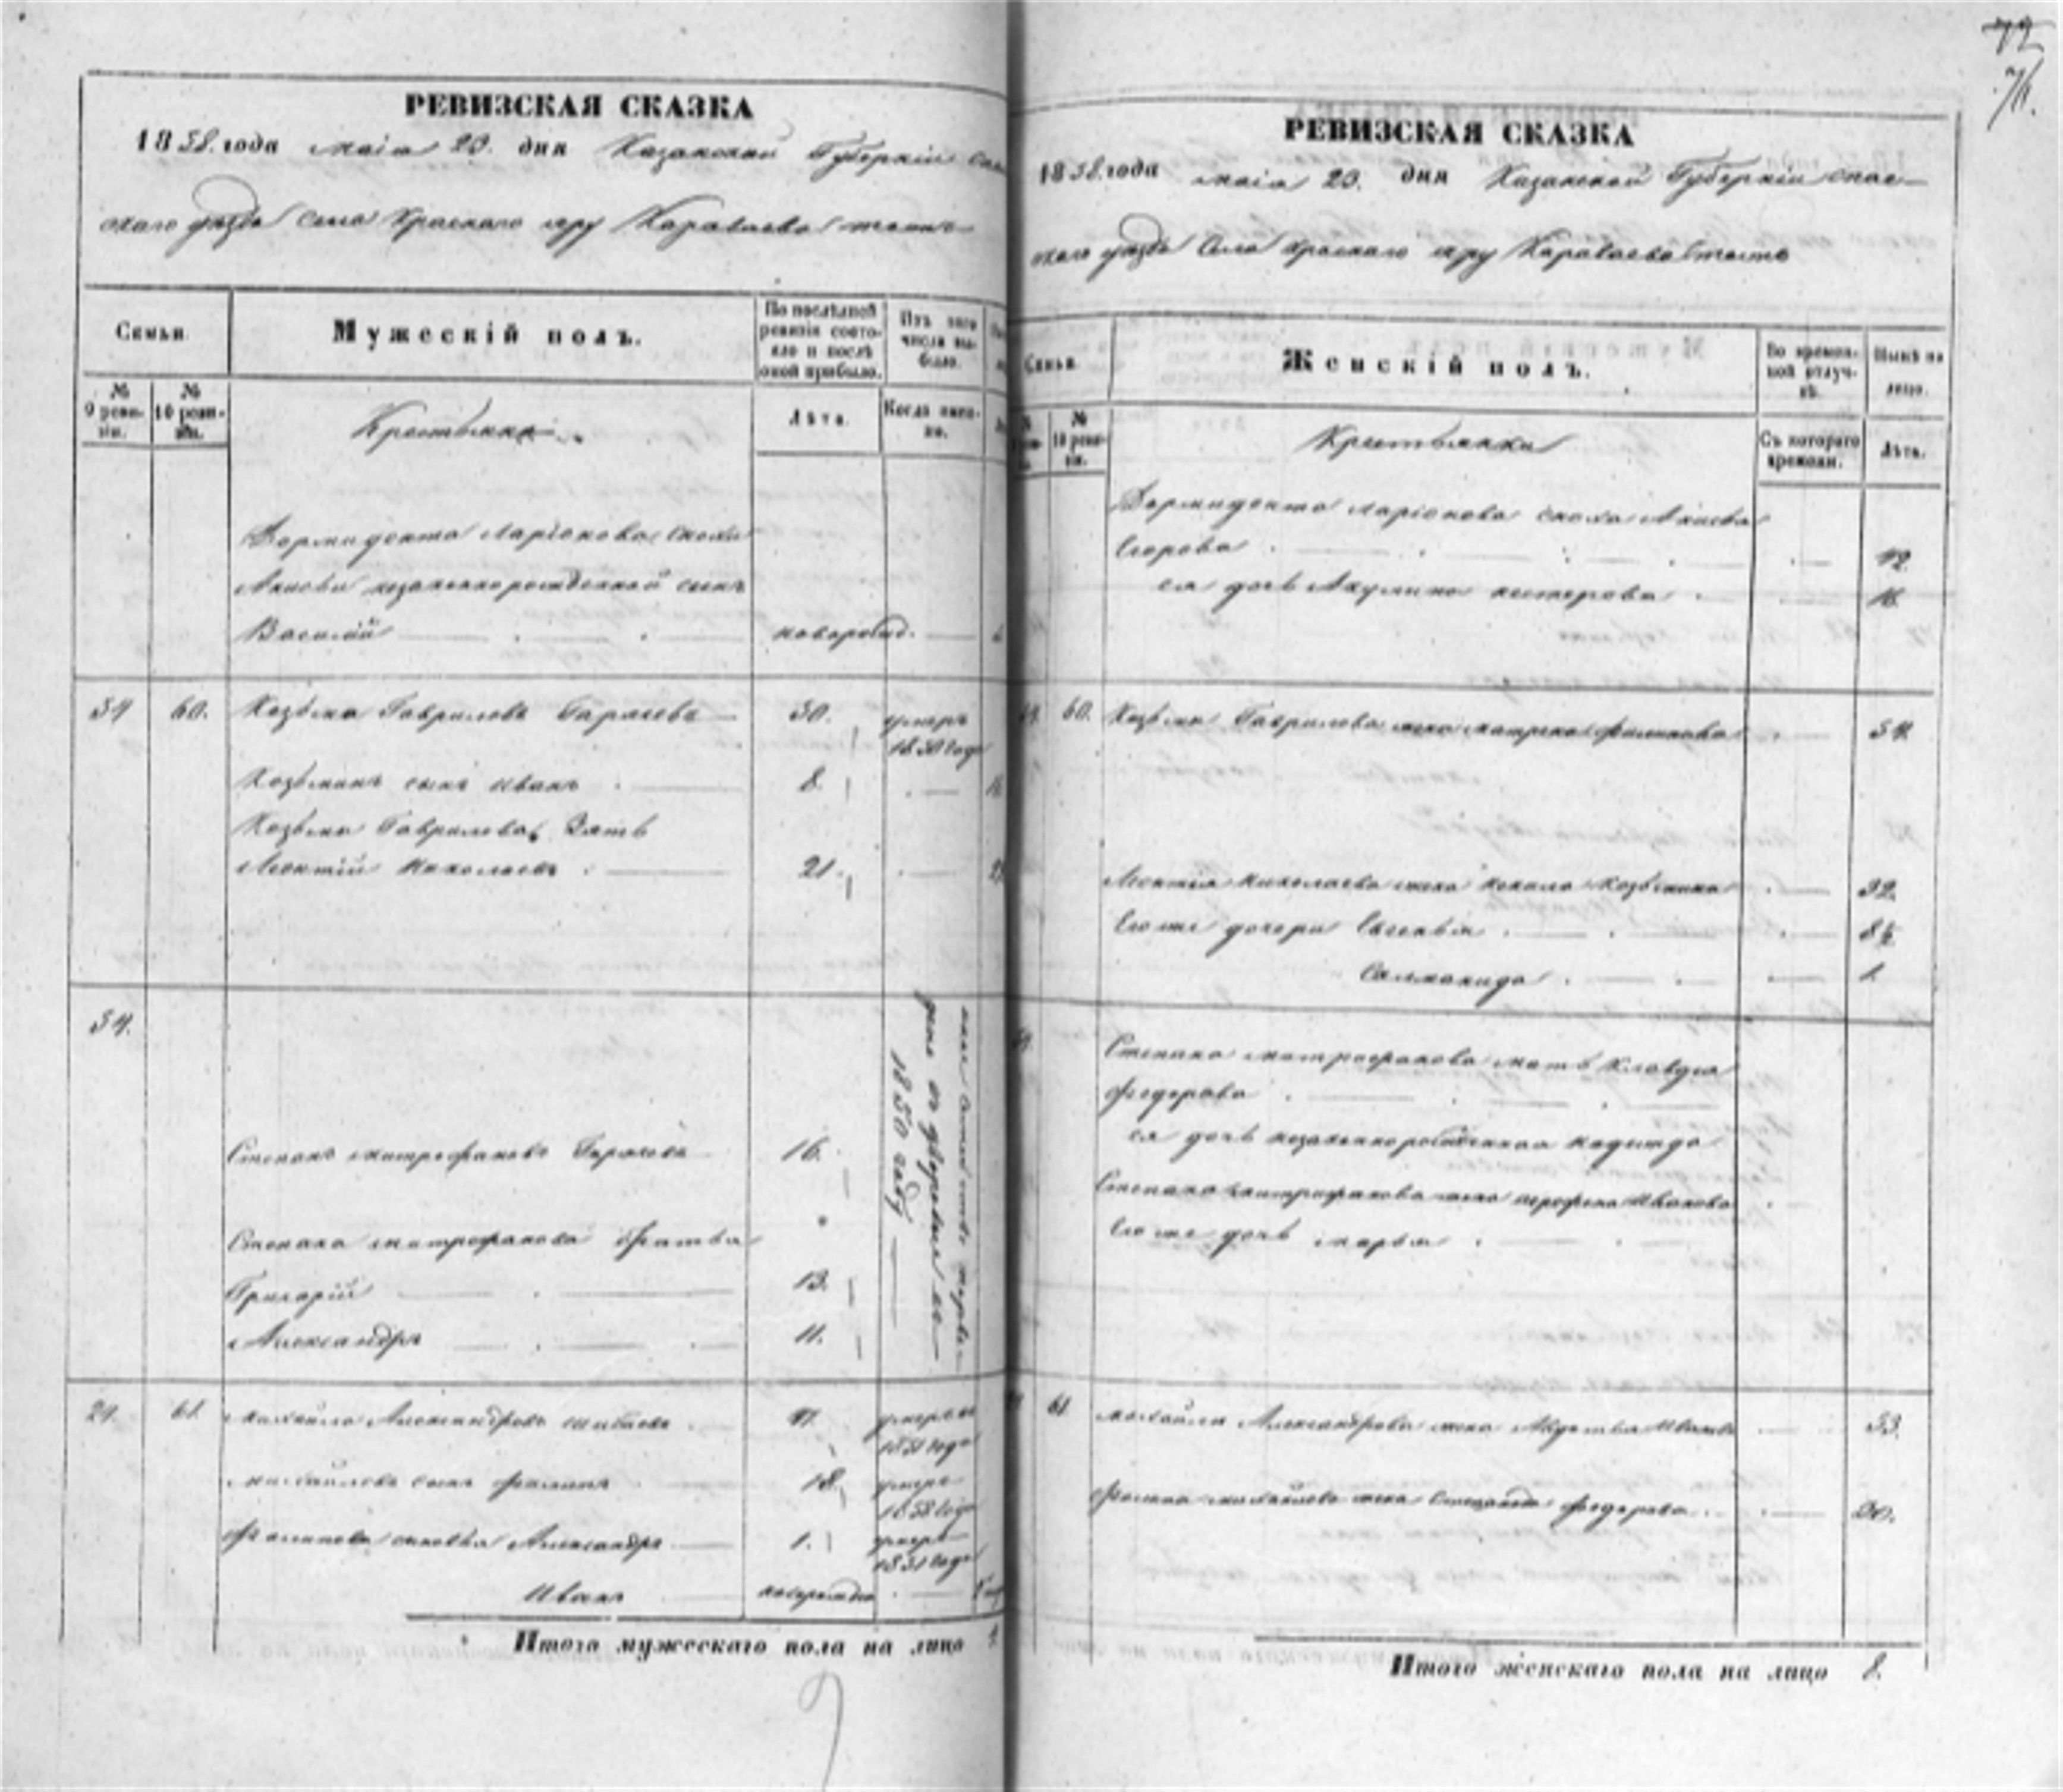 72
71.
РЕВИЗСКАЯ СКАЗКА
1858. года маія 23. дня Казанской Губерніи Спас
скаго уѣзда Села Краснаго яру Караваева тожъ
Семьи.
Мужескій полъ.
По послѣдней ревизіи состояло и послѣ оной прибыло.
Изъ того числа выбыло.
№ 9 ревизіи.
№ 10 ревизіи.
Крестьяне
Лѣта.
Когда именно.
Дормидонта Ларіонова снохи
Анисьи незаконнорожденной сынъ
Василій новорожд.
34 60. Козьма Гавриловъ Гарячевъ 50. умеръ
1850 года
Козьминъ сынъ Иванъ 8.
Козьмы Гаврилова Зять
Леонтій Николаевъ 21.
34.
Степанъ митрофановъ Горячевъ 16.
Степана митрофанова братья
Григорій 13.
Александръ 11.
1850 году
24. 61. Михайло Александровъ 47. умеръ въ
1851 году
михайловъ сынъ Филипъ 18. умеръ
1858 года
Филипова сыновья Александръ 1. умеръ
1851 года
Иванъ новорожден
Итого мужескаго пола на лицо
РЕВИЗСКАЯ СКАЗКА
1858. года маія 23. дня Казанской Губерніи Спас
скаго уѣзда Села Краснаго яру Караваева тожъ
Семьи.
Женскій полъ.
Во временной отлучкѣ.
Нынѣ на лицо.
№ 10 ревизіи.
Крестьянки
Съ котораго времени.
Лѣта.
Дормидонта Ларіонова сноха Анисья
Егорова 42.
ея дочь Акулина нестерова 16.
60. Козьмы Гаврилова жена матрена филипова 54.
Леонтія Николаева жена Козьмина 32.
Его же дочери Евгенья 8½
Саламонида 1.
Степана митрофанова мать Клавдія
Федорова
ея дочь незаконнорожденная надежда
Степана митрофанова жена Иванова
Его же дочь марья
61. михайлы Александрова жена Авдотья Иванова 53.
Филипа михайлова жена Степанида федорова 30.
Итого женскаго пола на лицо 8.